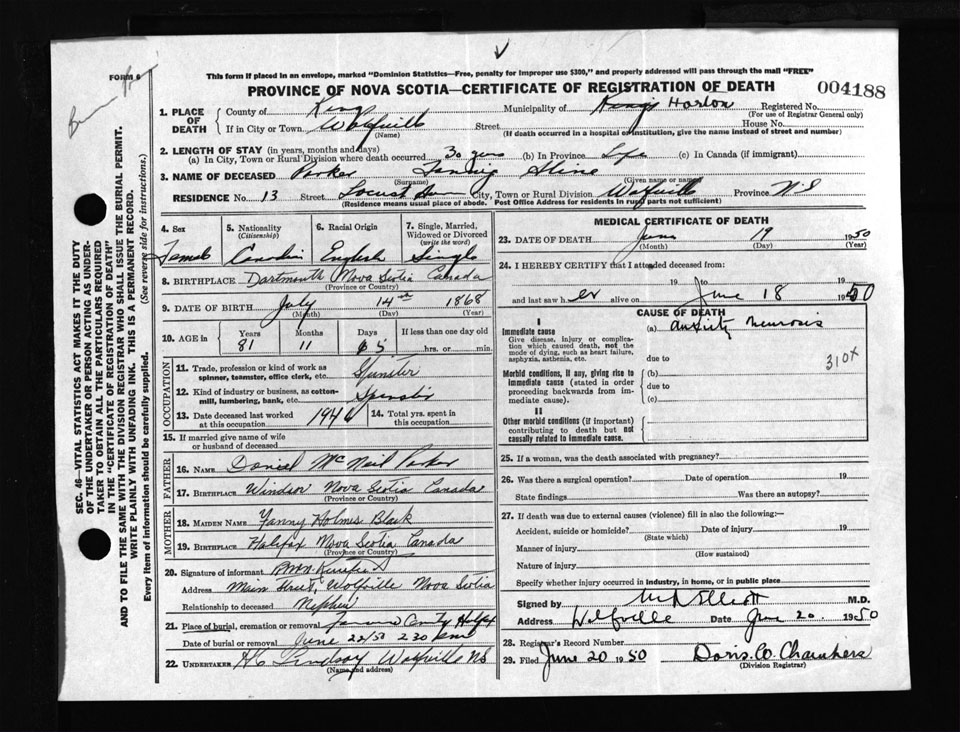 FORM 6
This form if placed in an envelope, marked "Dominion Statistics—Free, penalty for improper use $300," and properly addressed will pass through the mail "FREE"
PROVINCE OF NOVA SCOTIA—CERTIFICATE OF REGISTRATION OF DEATH 004188
1. PLACE OF DEATH County of Kings Municipality of Kings Horton Registered No.
(For use of Registrar General only)
If in City or Town Wolfville Street House No.
(Name) (If death occurred in a hospital or institution, give the name instead of street and number)
2. LENGTH OF STAY (in years, months and days)
(a) In City, Town or Rural Division where death occurred 30 yrs (b) In Province Life (c) In Canada (if immigrant)
3. NAME OF DECEASED Parker
(Surname) (Given name or names)
RESIDENCE No. 13 Street Locust City, Town or Rural Division Wolfville Province N.S
(Residence means usual place of abode. Post Office Address for residents in rural parts not sufficient)
4. Sex 5. Nationality (Citizenship) 6. Racial Origin 7. Single, Married, Widowed or Divorced (write the word)
Female Canadian English Single
8. BIRTHPLACE Dartmouth Nova Scotia Canada
(Province or Country)
9. DATE OF BIRTH July 14th 1868
(Month) (Day) (Year)
10. AGE in Years Months Days If less than one day old
81 11 5 hrs. or min.
OCCUPATION
11. Trade, profession or kind of work as spinner, teamster, office clerk, etc. Spinster
12. Kind of industry or business, as cotton-mill, lumbering, bank, etc. Spinster
13. Date deceased last worked at this occupation 1946 14. Total yrs. spent in this occupation
15. If married give name of wife or husband of deceased
FATHER
16. NAME Daniel McNeil Parker
17. BIRTHPLACE Windsor Nova Scotia Canada
(Province or Country)
MOTHER
18. MAIDEN NAME Fanny Holmes Black
19. BIRTHPLACE Halifax Nova Scotia Canada
(Province or Country)
20. Signature of informant
Address Main Street, Wolfville Nova Scotia
Relationship to deceased Nephew
21. Place of burial, cremation or removal
Date of burial or removal June 22/50 2 30 pm
22. UNDERTAKER Lindsay Wolfville NS
(Name and address)
MEDICAL CERTIFICATE OF DEATH
23. DATE OF DEATH June 19 1950
(Month) (Day) (Year)
24. I HEREBY CERTIFY that I attended deceased from:
19 to 19
and last saw her alive on June 18 1950
CAUSE OF DEATH
I
Immediate cause (a) anxiety neurosis
Give disease, injury or complication which caused death, not the mode of dying, such as heart failure, asphyxia, asthenia, etc.
due to
310x
Morbid conditions, if any, giving rise to immediate cause (stated in order proceeding backwards from immediate cause). (b)
due to
(c)
II
Other morbid conditions (if important) contributing to death but not causally related to immediate cause.
25. If a woman, was the death associated with pregnancy?
26. Was there a surgical operation? Date of operation 19
State findings Was there an autopsy?
27. If death was due to external causes (violence) fill in also the following:—
Accident, suicide or homicide? Date of injury 19
(State which)
Manner of injury
(How sustained)
Nature of injury
Specify whether injury occurred in industry, in home, or in public place
Signed by Elliott M.D.
Address Wolfville Date June 20. 1950
28. Registrar's Record Number
29. Filed June 20 1950 Doris. Chambers
(Division Registrar)
SEC. 46—VITAL STATISTICS ACT MAKES IT THE DUTY
OF THE UNDERTAKER OR PERSON ACTING AS UNDER-
TAKER TO OBTAIN ALL THE PARTICULARS REQUIRED
IN THE "CERTIFICATE OF REGISTRATION OF DEATH"
AND TO FILE THE SAME WITH THE DIVISION REGISTRAR WHO SHALL ISSUE THE BURIAL PERMIT.
WRITE PLAINLY WITH UNFADING INK. THIS IS A PERMANENT RECORD.
Every item of information should be carefully supplied. (See reverse side for instructions.)